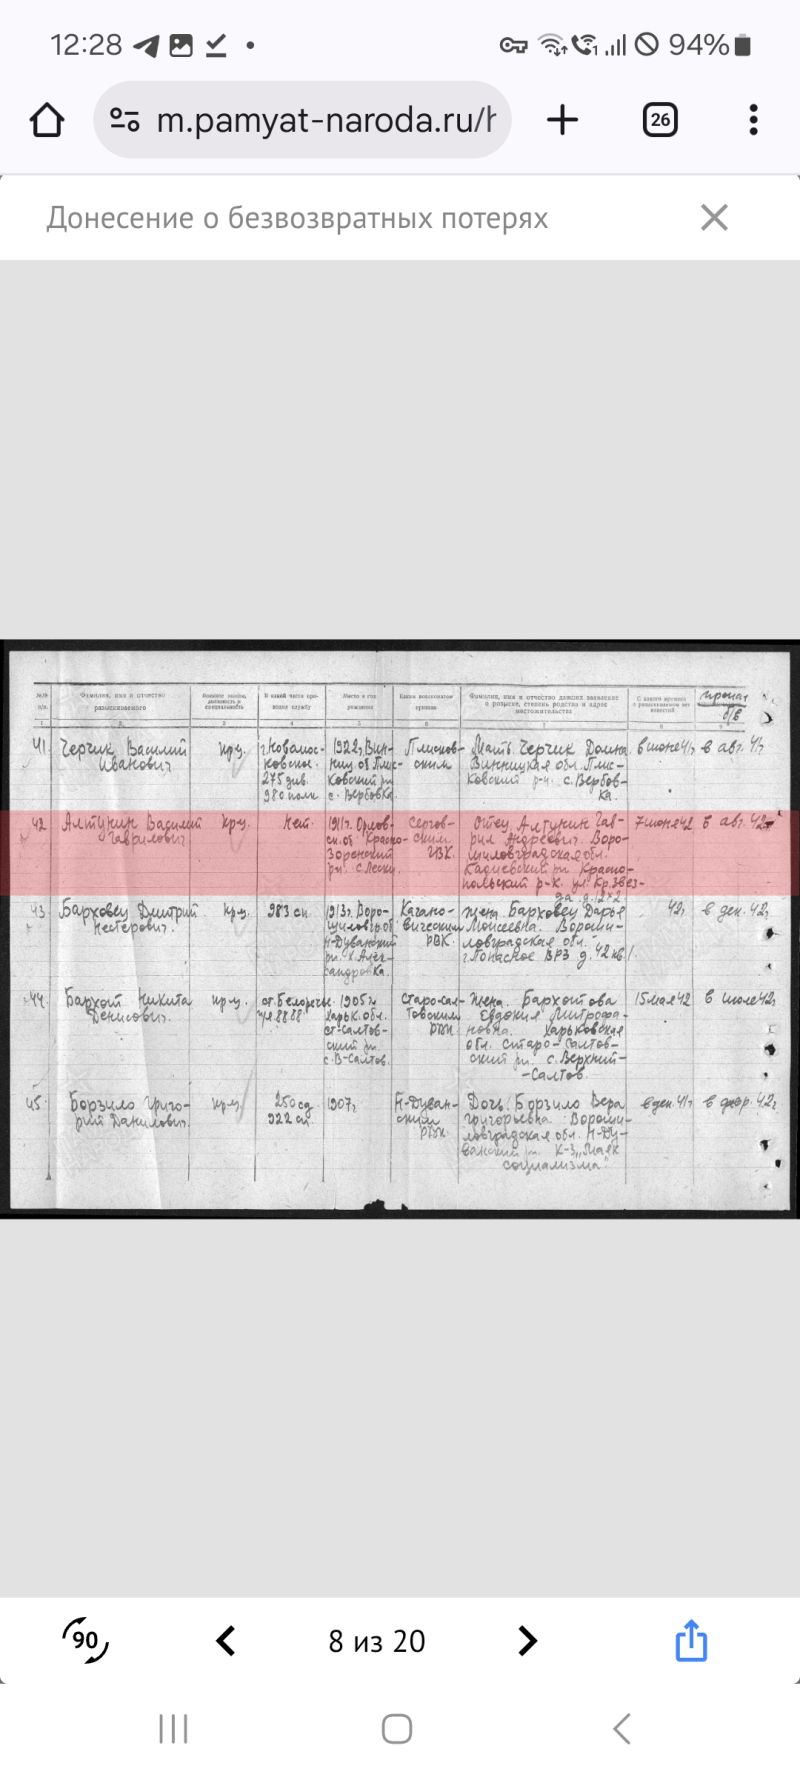 12:28
94%
m.pamyat-naroda.ru/h
26
Донесение о безвозвратных потерях
№№ п/п.
Фамилия, имя и отчество разыскиваемого
Военное звание, должность и специальность
В какой части проходил службу
Место и год рождения
Каким военкоматом призван
Фамилия, имя и отчество давших заявление о розыске, степень родства и адрес местожительства
С какого времени о разыскиваемом нет известий
пропал б/в
41 Черчик Василий Иванович
кр-ц
275 див. 980 полк
1922г. Вин-
с. Вербовка.
Плисков-
ским
Мать Черчик Домна
Винницкая обл. Плис-
ковский р-н. с. Вербов-
ка.
в июне 41г
в авг. 41г
42 Алтунин Василий Гаврилович
кр-ц
Нет.
1911г. Орлов-
ск. об Красно-
Зоренский
рн. с.
Сергов-
ским
Отец Алтунин Гав-
рил Андреевич. Воро-
шиловградская обл.
Кадиевский рн Красно-
польский р-к. ул Кр. Звез-
да д. 12
7 июня 42
в авг. 42г
43 Барховец Дмитрий Нестерович.
кр-ц
983 сп
1913г. Воро-
шиловгр. об
Н-Дуванский
рн. х. Алек-
сандровка
Кагано-
вическим
РВК.
Жена. Барховец Дарья
Моисеевна. Вороши-
ловградская обл.
г. Попасное ВРЗ д. 42 кв 1.
42г
в дек. 42г
44 Бархот Никита Денисович.
кр-ц
1905г
Харьк. обл.
ст-Салтов-
ский рн.
с. В-Салтов.
Старо-Сал-
товским
РВК
Жена. Бархотова
Евдокия Митрофа-
новна. Харьковская
обл. Старо-Салтов-
ский рн. с. Верхний-
-Салтов.
15 мая 42
в июле 42г
45 Борзило Григо-
рий Данилович.
кр-ц
250 сд
922 сп
1907г
Н-Дуван-
ским
РВК
Дочь Борзило Вера
Григорьевна Вороши-
ловградская обл. Н-Ду-
ванский рн. К-з "Маяк
социализма"
в дек. 41г
в февр. 42г
90
8 из 20